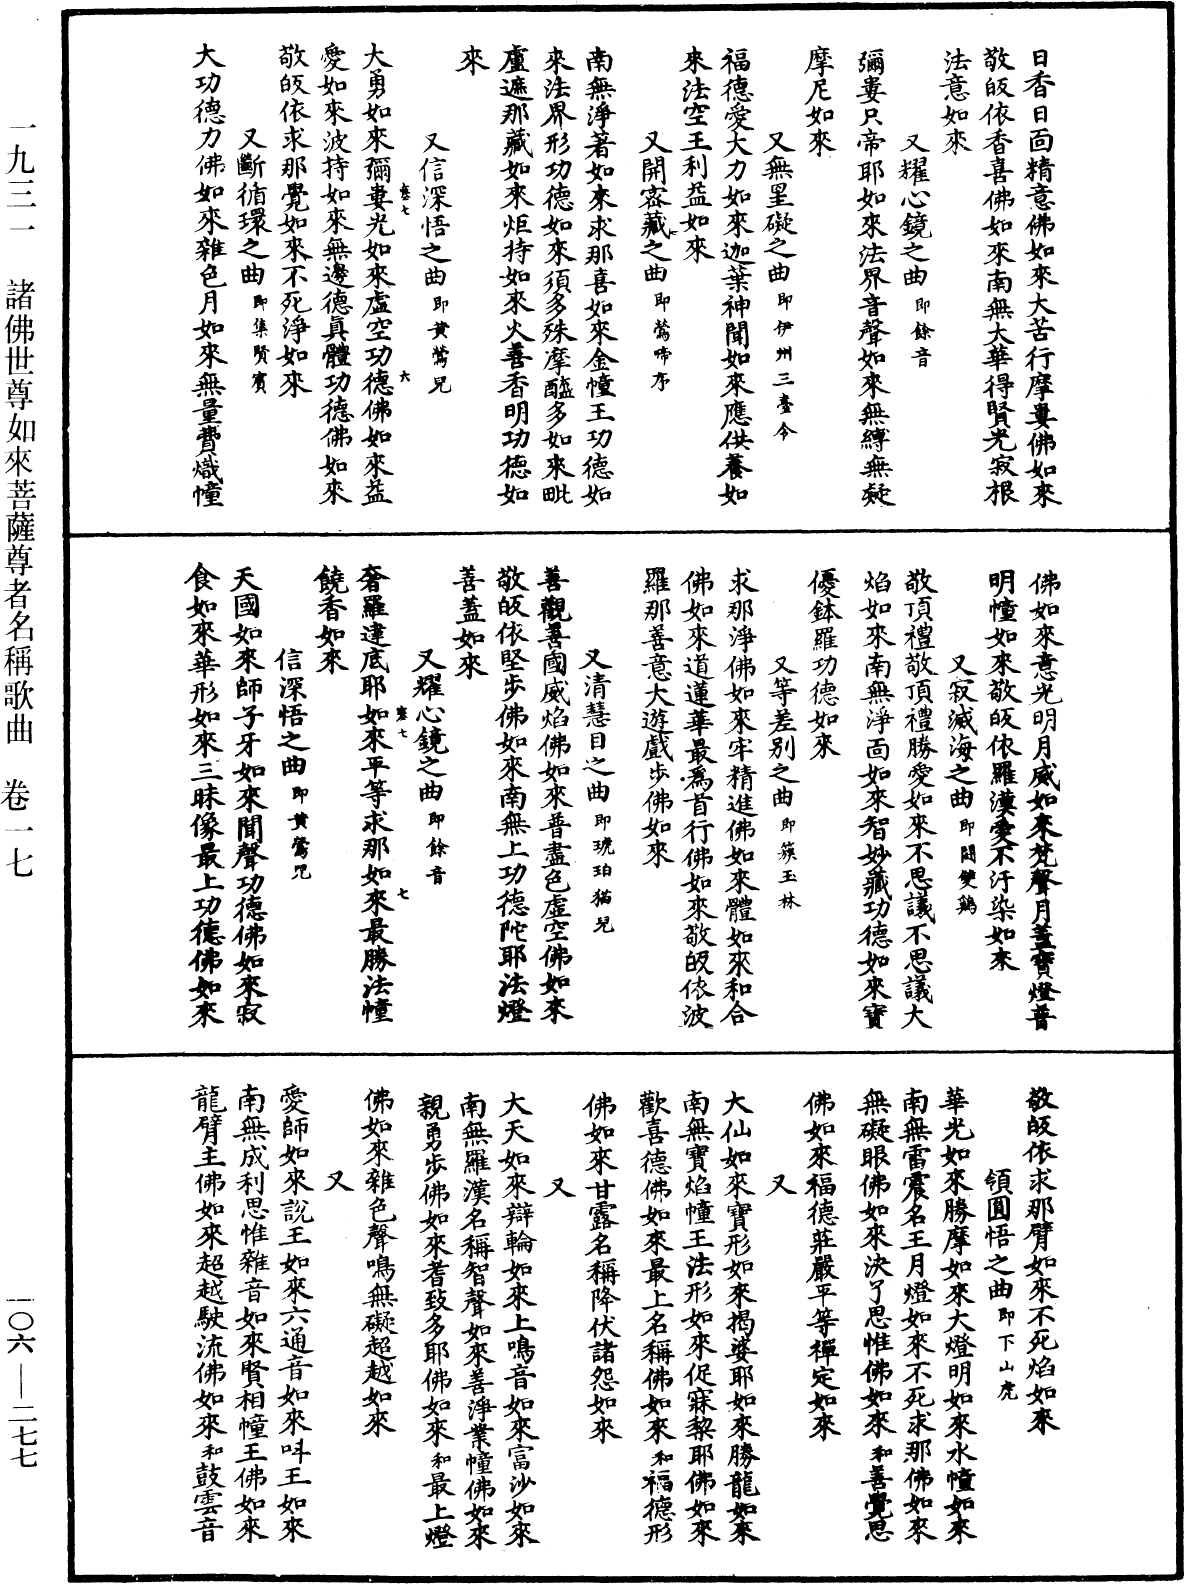 日香日面精意佛如來大苦行摩婁佛如來
敬皈依香喜佛如來南無大華得賢光寂根
法意如來
又耀心鏡之曲即餘音
彌婁只帝耶如來法界音聲如來無縛無礙
摩尼如來
又無罣礙之曲即伊州三臺令
福德愛大力如來迦葉神聞如來應供養如
來法空王利益如來
又開密藏之曲即鶯啼序
南無淨著如來求那喜如來金幢王功德如
來法界形功德如來須多殊摩醯多如來毗
盧遮那藏如來炬持如來火善香明功德如
來
又信深悟之曲即黃鶯兒
大勇如來彌婁光如來虛空功德佛如來益
卷七 六
愛如來波持如來無邊德真體功德佛如來
敬皈依求那覺如來不死淨如來
又斷循環之曲即集賢賓
大功德力佛如來雜色月如來無量費熾幢
佛如來意光明月威如來梵聲月蓋寶燈普
明幢如來敬皈依羅漢愛不汙染如來
又寂滅海之曲即鬪雙鷄
敬頂禮敬頂禮勝愛如來不思議不思議大
焰如來南無淨面如來智妙藏功德如來寶
優鉢羅功德如來
又等差別之曲即簇玉林
求那淨佛如來牢精進佛如來體如來和合
佛如來道蓮華最為首行佛如來敬皈依波
羅那善意大遊戲步佛如來
又清慧目之曲即琥珀猫兒
善觀善國威焰佛如來普盡色虛空佛如來
敬皈依堅步佛如來南無上功德陀耶法燈
善蓋如來
又耀心鏡之曲即餘音
奢羅達底耶如來平等求那如來最勝法幢
卷七 七
饒香如來
信深悟之曲即黃鶯兒
天國如來師子牙如來聞聲功德佛如來寂
食如來華形如來三昧像最上功德佛如來
敬皈依求那臂如來不死焰如來
領圓悟之曲即下山虎
華光如來勝摩如來大燈明如來水幢如來
南無雷震名王月燈如來不死求那佛如來
無礙眼佛如來決了思惟佛如來和善覺思
佛如來福德莊嚴平等禪定如來
又
大仙如來寶形如來揭婆耶如來勝龍如來
南無寶焰幢王法形如來促寐黎耶佛如來
歡喜德佛如來最上名稱佛如來和福德形
佛如來甘露名稱降伏諸怨如來
又
大天如來辯輪如來上鳴音如來富沙如來
南無羅漢名稱智聲如來善淨業幢佛如來
親勇步佛如來耆致多耶佛如來和最上燈
佛如來雜色聲鳴無礙超越如來
又
愛師如來說王如來六通音如來叫王如來
南無成利思惟雜音如來賢相幢王佛如來
龍臂主佛如來超越駛流佛如來和鼓雲音
一九三一 諸佛世尊如來菩薩尊者名稱歌曲 卷一七 一〇六—二七七